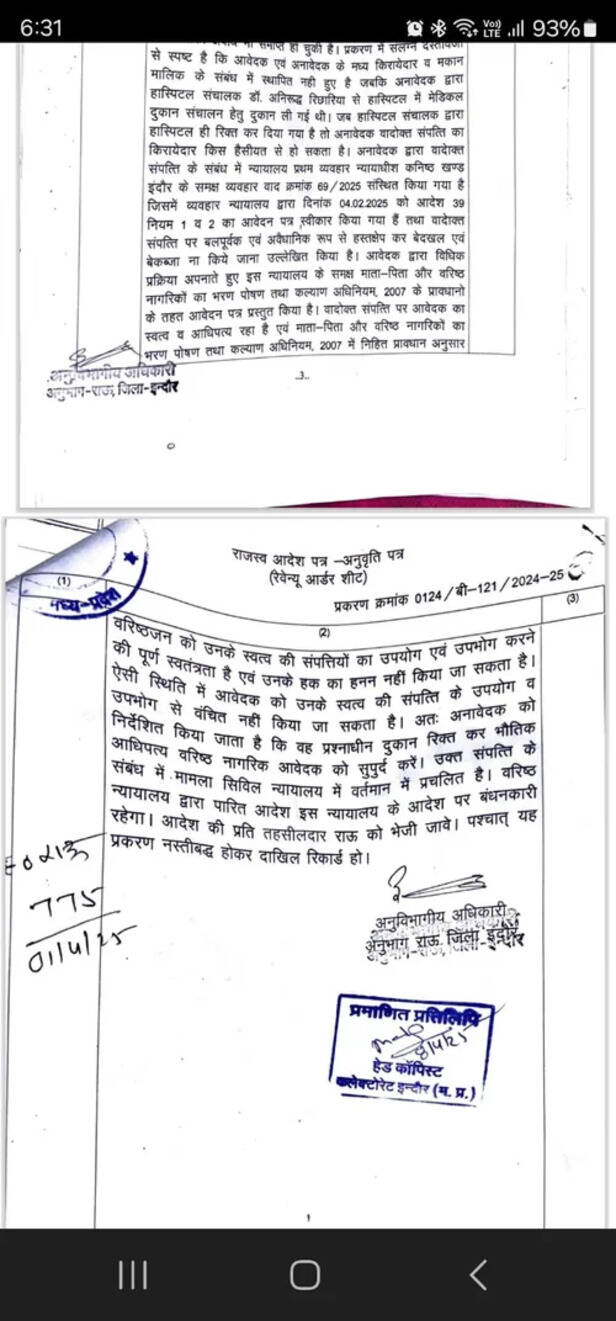 6:31
Vo))
LTE
93%
समाप्त हो चुकी है। प्रकरण में संलग्न दस्तावेजों
से स्पष्ट है कि आवेदक एवं अनावेदक के मध्य किरायेदार व मकान
मालिक के संबंध में स्थापित नही हुए है जबकि अनावेदक द्वारा
हास्पिटल संचालक डॉ. अनिरूद्ध रिछारिया से हास्पिटल में मेडिकल
दुकान संचालन हेतु दुकान ली गई थी। जब हास्पिटल संचालक द्वारा
हास्पिटल ही रिक्त कर दिया गया है तो अनावेदक वादोक्त संपत्ति का
किरायेदार किस हैसीयत से हो सकता है। अनावेदक द्वारा वादोक्त
संपत्ति के संबंध में न्यायालय प्रथम व्यवहार न्यायाधीश कनिष्ठ खण्ड
इंदौर के समक्ष व्यवहार वाद क्रमांक 69/2025 संस्थित किया गया है
जिसमें व्यवहार न्यायालय द्वारा दिनांक 04.02.2025 को आदेश 39
नियम 1 व 2 का आवेदन पत्र स्वीकार किया गया हैं तथा वादोक्त
संपत्ति पर बलपूर्वक एवं अवैधानिक रूप से हस्तक्षेप कर बेदखल एवं
बेकब्जा ना किये जाना उल्लेखित किया है। आवेदक द्वारा विधिक
प्रक्रिया अपनाते हुए इस न्यायालय के समक्ष माता-पिता और वरिष्ठ
नागरिकों का भरण पोषण तथा कल्याण अधिनियम, 2007 के प्रावधानो
के तहत आवेदन पत्र प्रस्तुत किया है। वादोक्त संपत्ति पर आवेदक का
स्वत्व व आधिपत्य रहा है एवं माता-पिता और वरिष्ठ नागरिकों का
भरण पोषण तथा कल्याण अधिनियम, 2007 में निहित प्रावधान अनुसार
अनुविभागीय अधिकारी
अनुभाग-राऊ, जिला-इन्दौर
..3..
राजस्व आदेश पत्र –अनुवृति पत्र
(रेवेन्यू आर्डर शीट)
प्रकरण क्रमांक 0124/बी-121/2024-25
मध्य-प्रदेश
(1)
(2)
(3)
वरिष्ठजन को उनके स्वत्व की संपत्तियों का उपयोग एवं उपभोग करने
की पूर्ण स्वतंत्रता है एवं उनके हक का हनन नहीं किया जा सकता है।
ऐसी स्थिति में आवेदक को उनके स्वत्व की संपत्ति के उपयोग व
उपभोग से वंचित नहीं किया जा सकता है। अतः अनावेदक को
निर्देशित किया जाता है कि वह प्रश्नाधीन दुकान रिक्त कर भौतिक
आधिपत्य वरिष्ठ नागरिक आवेदक को सुपुर्द करें। उक्त संपत्ति के
संबंध में मामला सिविल न्यायालय में वर्तमान में प्रचलित है। वरिष्ठ
न्यायालय द्वारा पारित आदेश इस न्यायालय के आदेश पर बंधनकारी
रहेगा। आदेश की प्रति तहसीलदार राऊ को भेजी जावे। पश्चात् यह
प्रकरण नस्तीबद्ध होकर दाखिल रिकार्ड हो।
775
01/4/25
अनुविभागीय अधिकारी
अनुभाग राऊ जिला इंदौर
प्रमाणित प्रतिलिपि
8/4/25
हेड कॉपिस्ट
कलेक्टोरेट इन्दौर (म. प्र.)